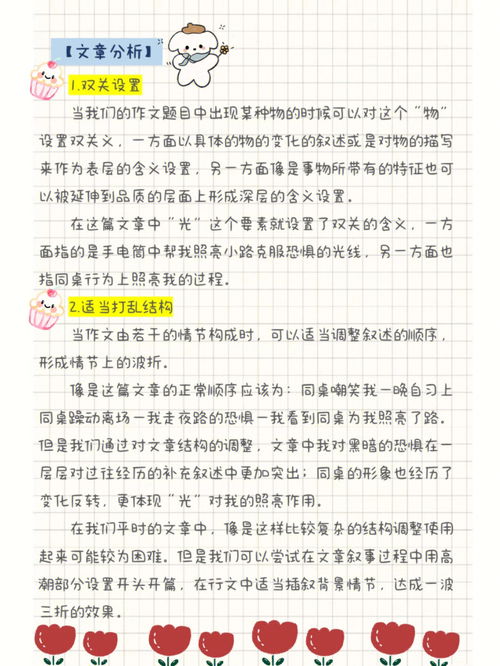 【文章分析】
1.双关设置
当我们的作文题目中出现某种物的时候可以对这个“物”
设置双关义，一方面以具体的物的变化的叙述或是对物的描写
来作为表层的含义设置，另一方面像是事物所带有的特征也可
以被延伸到品质的层面上形成深层的含义设置。
在这篇文章中“光”这个要素就设置了双关的含义，一方
面指的是手电筒中帮我照亮小路克服恐惧的光线，另一方面也
指同桌行为上照亮我的过程。
2.适当打乱结构
当作文由若干的情节构成时，可以适当调整叙述的顺序，
形成情节上的波折。
像是这篇文章的正常顺序应该为：同桌嘲笑我—晚自习上
同桌躁动离场—我走夜路的恐惧—我看到同桌为我照亮了路。
但是我们通过对文章结构的调整，文章中我对黑暗的恐惧在一
层层对过往经历的补充叙述中更加突出；同桌的形象也经历了
变化反转，更体现“光”对我的照亮作用。
在我们平时的文章中，像是这样比较复杂的结构调整使用
起来可能较为困难。但是我们可以尝试在文章叙事过程中用高
潮部分设置开头开篇，在行文中适当插叙背景情节，达成一波
三折的效果。